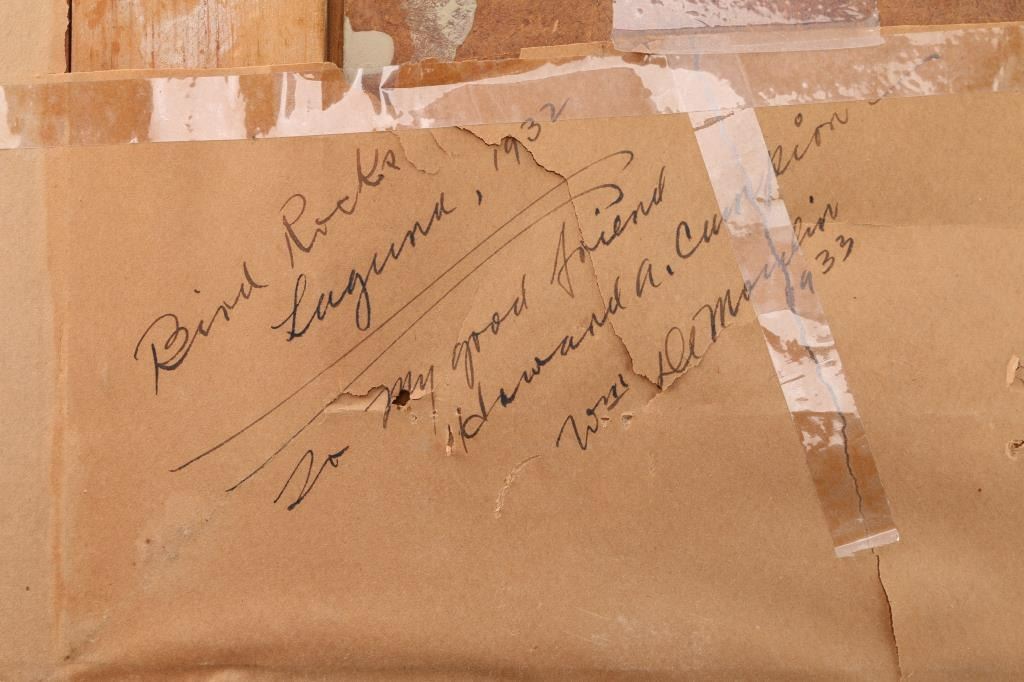 Bird Rocks
Laguna, 1932
To my good friend
Howard A.
Wm DeMoulin
1933